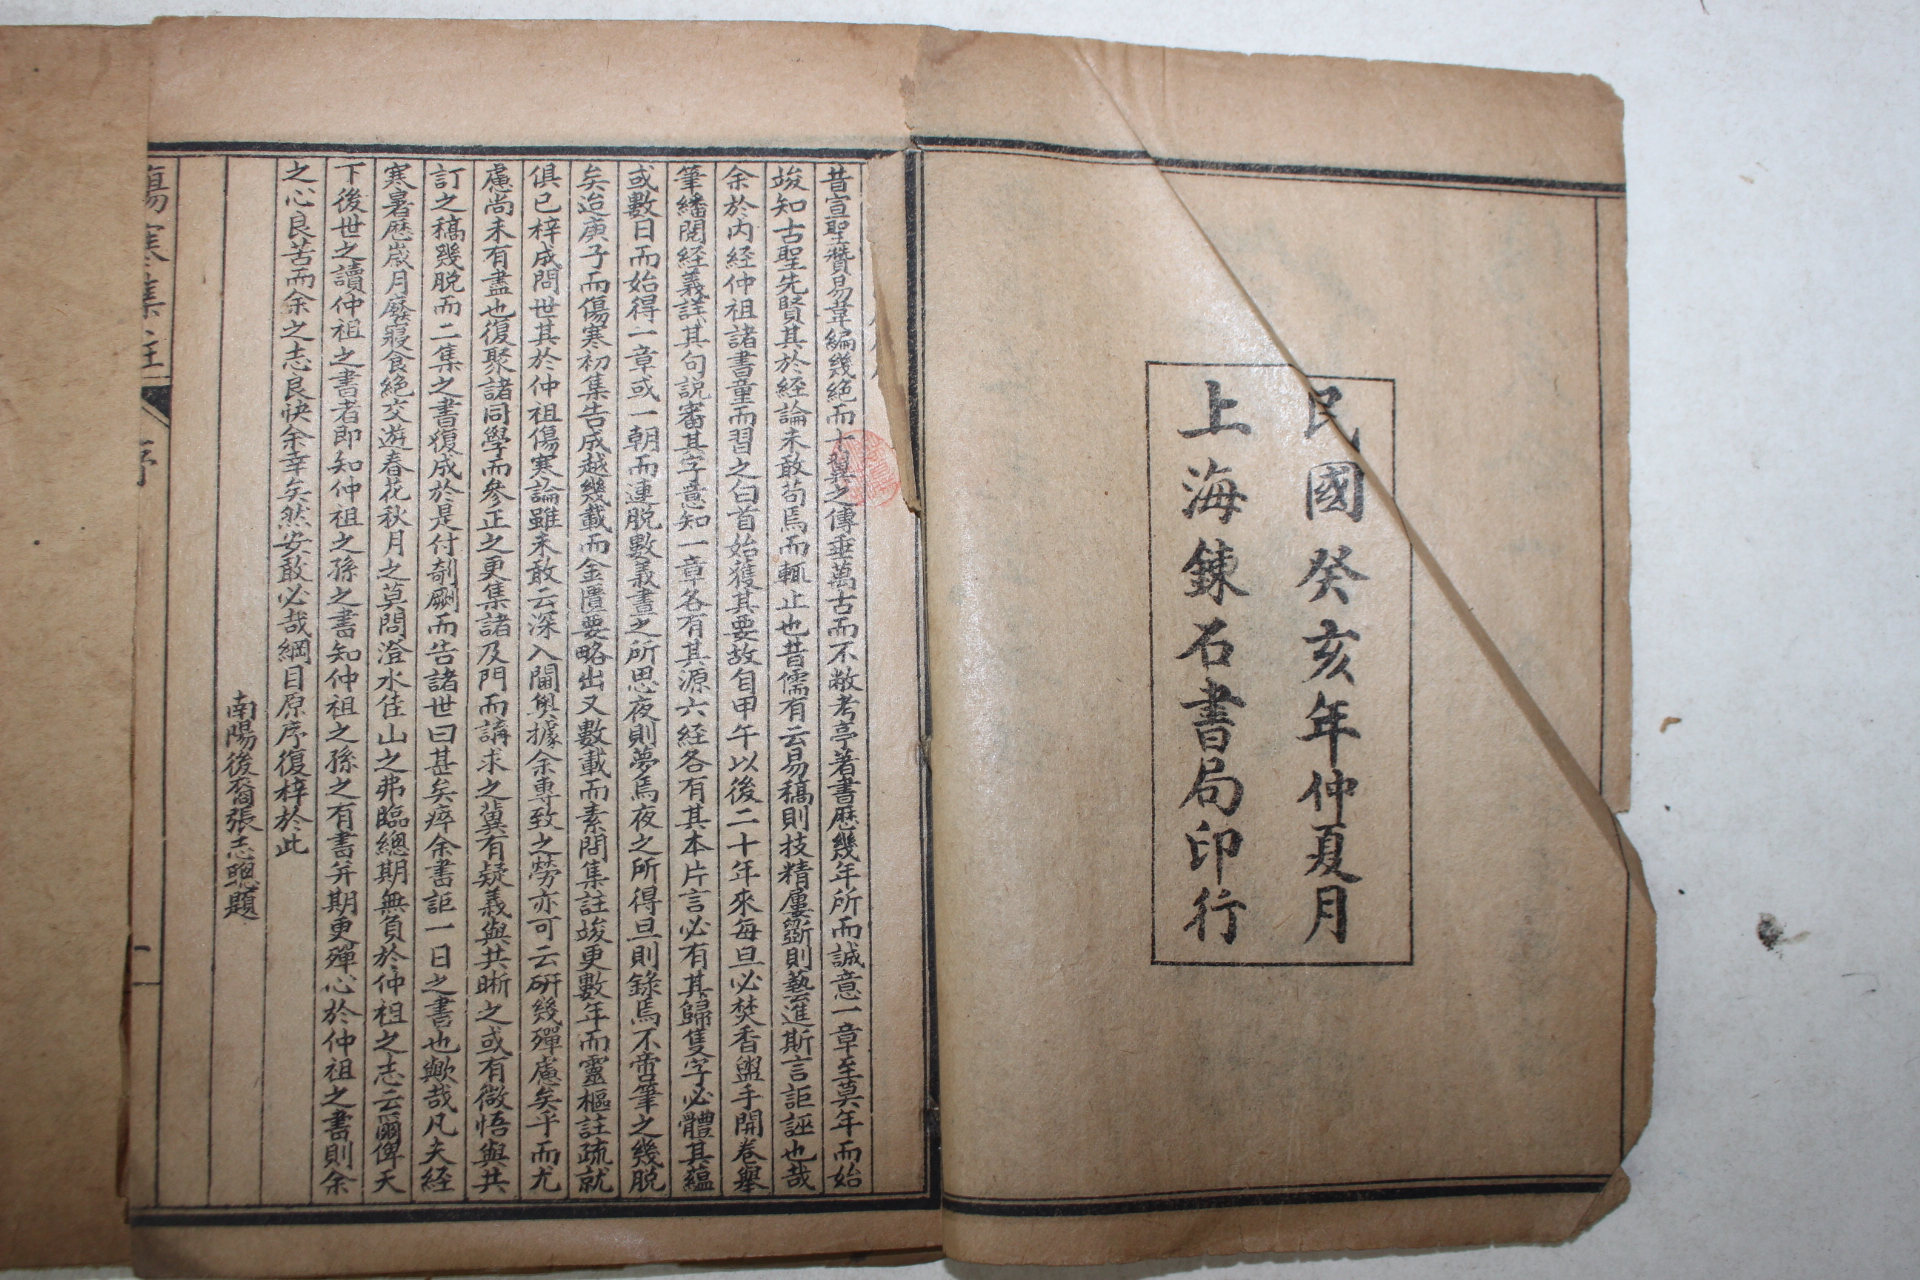 民國癸亥年仲夏月
上海錬石書局印行
昔宣聖贊易韋編幾絶而十翼之傳垂萬古而不敝考亭著書歷幾年所而誠意一章至莫年而始
竣知古聖先賢其於經論未敢苟焉而輒止也昔儒有云易稿則技精屢斵則藝進斯言詎誣也哉
余於内経仲祖諸書童而習之白首始獲其要故自甲午以後二十年來每旦必焚香盥手開卷舉
筆繙閱経義詳其句說審其字意知一章各有其源六経各有其本片言必有其歸隻字必體其蘊
或數日而始得一章或一朝而連脱數義晝之所思夜則夢焉夜之所得旦則錄焉不啻筆之幾脱
矣迨庚子而傷寒初集告成越幾載而金匱要略出又數載而素問集註竣更數年而靈樞註疏就
俱已梓成問世其於仲祖傷寒論雖未敢云深入閫奥據余專致之勞亦可云研幾殫慮矣乎而尤
慮尚未有盡也復聚諸同學而參正之更集諸及門而講求之冀有疑義與共晰之或有微悟與共
訂之稿幾脱而二集之書復成於是付剞劂而告諸世曰甚矣瘁余書詎一日之書也歟哉凡夫経
寒暑歷歲月廢寢食絶交遊春花秋月之莫問澄水佳山之弗臨總期無負於仲祖之志云爾俾天
下後世之讀仲祖之書者即知仲祖之孫之書知仲祖之孫之有書并期更殫心於仲祖之書則余
之心良苦而余之志良快余幸矣然安敢必哉綱目原序復梓於此
南陽後裔張志聰題
傷寒集註
序
一